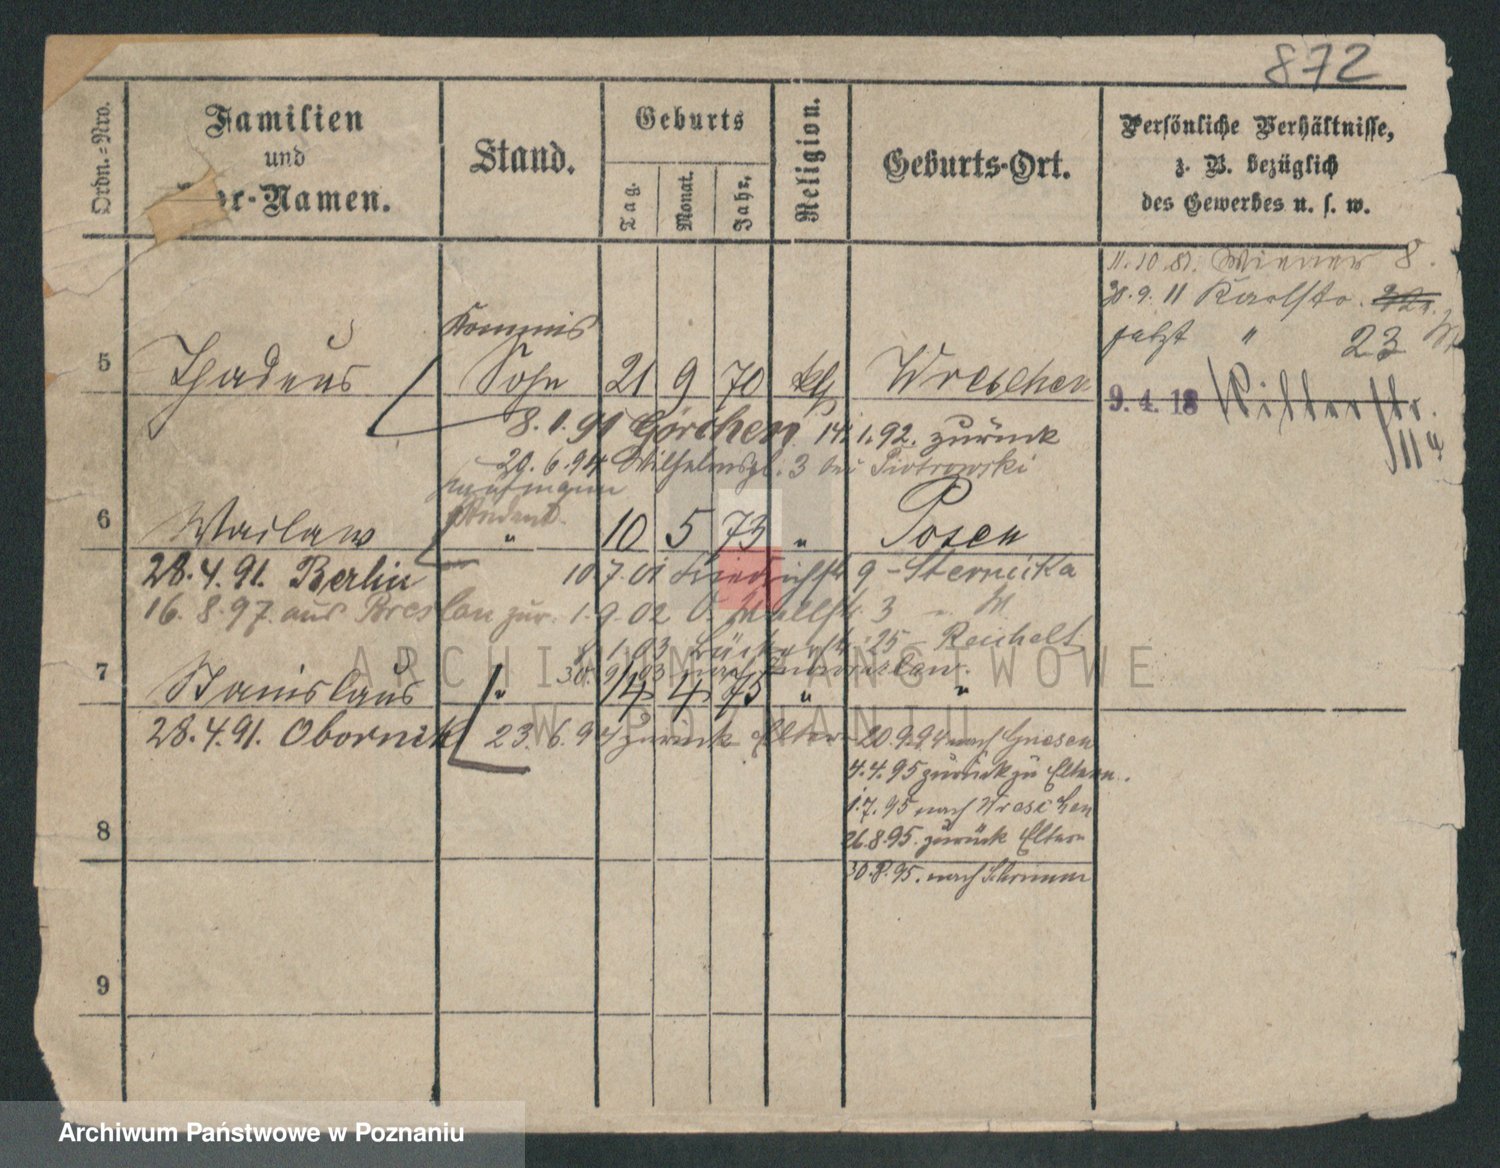 872
Ordn.-Nro.
Familien
und
Vor-Namen.
Stand.
Geburts
Tag.
Monat.
Jahr.
Religion.
Geburts-Ort.
Persönliche Verhältnisse,
z. B. bezüglich
des Gewerbes u. s. w.
11.10.81. Wiener 8.
30.9.11 Karlstr.
jetzt " 23
9.4.18 Ritterstr.
11a
Kommis
5 Thadeus Sohn 21 9 70 kth Wreschen
8.1.91 Görchen 14.1.92. zurück
29.6.94 Wilhelmspl. 3 bei Piotrowski
Kaufmann
Student.
6 Waclaw " 10 5 73 " Posen
28.4.91. Berlin 10 7.01 Friedrichstr 9 - Sternicka
16.8.97. aus Breslau zur. 1.9.02 O. Wallstr. 3
8.1.03 Bäckerstr. 25 - Reichelt
30.9.03 nach Inowraslaw.
7 Stanislaus " 14 4 75 " "
28.4.91. Obornik 23.6.94 zurück Eltern 20.9.94 nach Gnesen
4.4.95 zurück zu Eltern.
1.7.95 nach Wreschen
26.8.95. zurück Eltern
8
30.8.95. nach Schrimm
9
ARCHIWUM PAŃSTWOWE
W POZNANIU
Archiwum Państwowe w Poznaniu